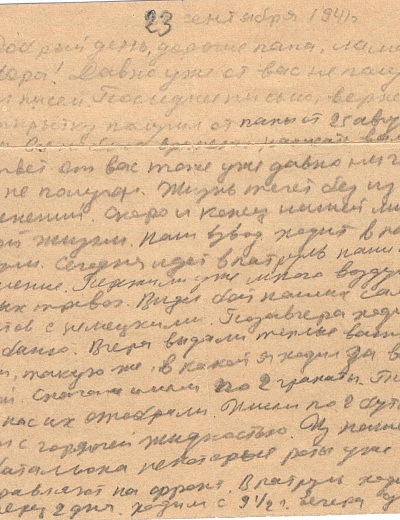 23 сентября 1941 г.
Добрый день, дорогие папа, мама
Давно уже от вас не полу
писем. Последнее письмо, верне
открытку получил от папы от 25 авгу
вет от вас тоже уже давно ни
не получал. Жизнь течет без из
менений. Скоро и конец нашей
жизни. Наш взвод ходит в па
Сегодня идет в патруль наше
ление. Пережили уже много воздуш
ных тревог. Видел бой наших сам
тов с немецкими. Позавчера ходи
баню. Вчера выдали теплые
такую же, в какой я ходил
Сначала имели по 2 гранаты.
нас их отобрали. Имели по 2 буты
с горючей жидкостью. Из наше
батальона некоторые роты уже
правляют на фронт. В патруль ходи
2 дня. ходим с 9 1/2 г. вечера